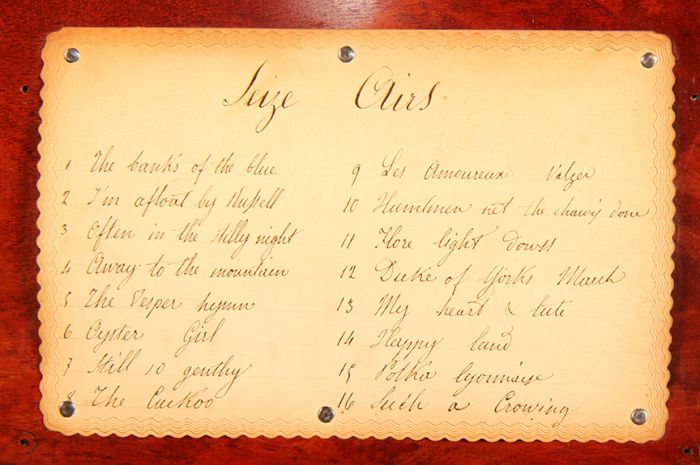 Seize Airs
1 The banks of the blue
2 I'm afloat by Russell
3 Often in the stilly night
4 Away to the mountain
5 The Vesper hymn
6 Oyster Girl
7 Still so genthy
8 The Cuckoo
9 Les Amoureux Valzer
10 the done
11 light
12 Duke of Yorks March
13 My heart & lute
14 Happy land
15 Polka lyonnaise
16 Such a Crowing